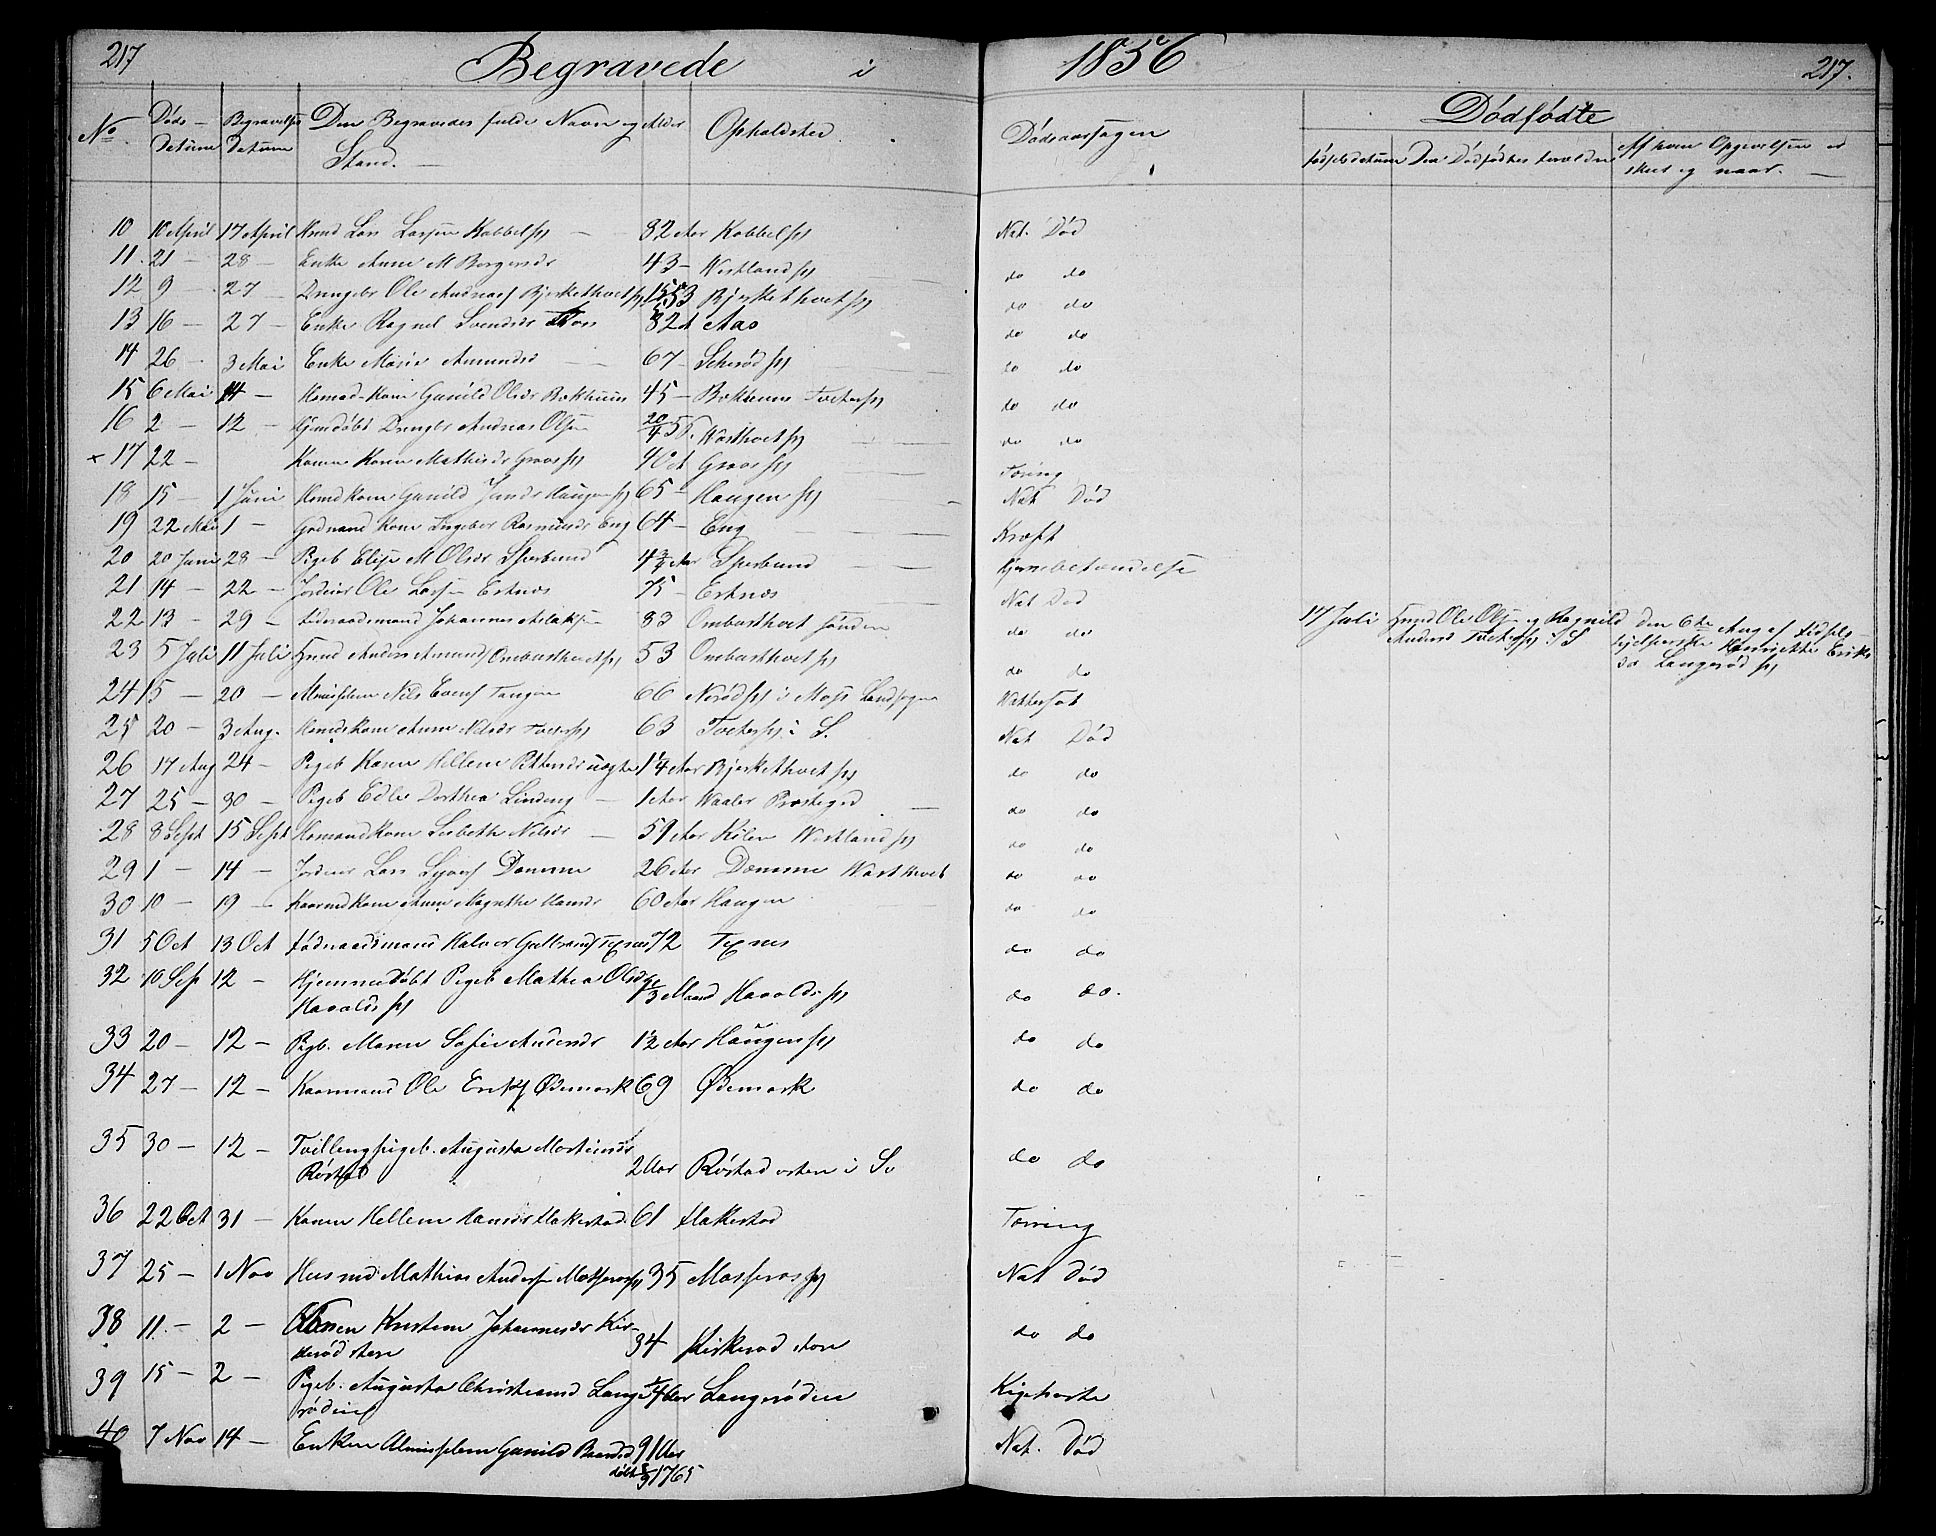 217 Begravede i 1856 217.
No. Døds- datum Begravelses datum Den Begravedes fulde Navn og Stand. Alder Opholdsted Dødsaarsagen Dødfødte
fødselsdatum Den Dødfødtes Forældre Af hvem Opgivelsen er skeet og naar.
10 10 April 17 April Lars Larsen Kabbelsp 82 Aar Kabbelsp Nat. Død
11. 21 — 28 — Enke Anne M Borgersdr 43 — Westlandsp do do
12 9 — 27 — Drengeb Ole Andreas Bjerkethvetsp Bjerkethvetsp do do
13 16 — 27 — Enke Ragnil Svendsdr Aas 82 A Aas do do
14 26 — 3 Mai Enke Marie Amundsd 67 — Scherødsp do do
15 6 Mai 14 — Gunild Olsdr Bakhuus 45 — Bakhuus Tvetersp do do
16 2 — 12 — Hjemdøbt Drengeb Andreas Olsen 20/4 56. Wasthvetsp do do
× 17 22 — Konen Karen Mathisdr Graassp 40 A Graassp Tæring
18 15 — 1 Juni Husmd Kone Gunild Jensdr Haugensp 65 — Haugensp Nat Død
19 22 Mai 1 — Gaardmand Kone Ingebor Rasmusdr Eng 64 — Eng Kræft
20 20 Juni 28 — Pigeb Elise M Olsdr Sperbund 4 3/4 Aar Sperbund Hjernebetændelse
21 14 — 22 — Jordeier Ole Larsen Eknæs 75 — Eknæs Nat Død
22 13 — 29 — Johannes Aslaksen 83 Ombusthvet søndre do do 17 Juli Husmd Ole Olsen og Ragnild Andersd Tvetersp i S den 6te Aug af Fødsels- hjelperske Henriette Eriks- dr Langerødsp
23 5 Juli 11 Juli Husmd Anders Amunds Ombusthvetsp 53 Ombusthvetsp do do
24 15 — 20 — Almisselem Nils Evens Tangen 66 Norødsp i Moss Landsogn Wattersot
25 20 — 3 Aug. Husmdskone Anne Nilsdr Tvetersp 63 Tvetersp i S. Nat Død
26 17 Aug 24 — Pigeb Karen Hellene 1 1/4 Aar Bjerkethvetsp do do
27 25 — 30 — Pigeb Edle Dorthea Lindeng — 1 Aar Waaler Præstegd do do
28 8 Sept 15 Sept Husmandkone Lisbeth Nilsdr — 59 Aar Kilen Westlandsp do do
29 1 — 14 — Jordeier Lars Damme 26 Aar Damme Wasthvet do do
30 10 — 19 — Gaardmdkone Anne Magrethe Hansdr 60 Aar Haugen do do
31 5 Oct 13 Oct Fødraadsmand Halvor Gulbrands Texnes 72 Texnes do do
32 10 Sep 12 — Hjemmedøbt Pigeb Mathea Olsdr Haraldssp Maaned Haraldssp do do.
33 20 — 12 — Pigb. Maren Sofie Andersdr 1 1/2 Aar Haugensp do do
34 27 — 12 — Gaarmand Ole Eriks Ødemark 69 Ødemark do do
35 30 — 12 — Tvillingpigeb. Augusta Mortensdr Røstad 2 Aar Røstad østen i S. do do
36 22 Oct 31 — Konen Hellene Hansdr Hakestad 61 Hakestad Tæring
37 25 — 1 Nov Husmd Mathias Anders Mosserossp 35 Mosserossp Nat Død
38 11 — 2 — Konen Kristene Johannesdr Kir- kerød store 34 Kirkerød store do do
39 15 — 2 — Pigeb. Augusta Christiansd Lange- rødens 1/4 Aar Langerøden Kighoste
40 7 Nov 14 — Enken Almisselem Gunild 91 Aar døbt 3/3 1765 Nat. Død